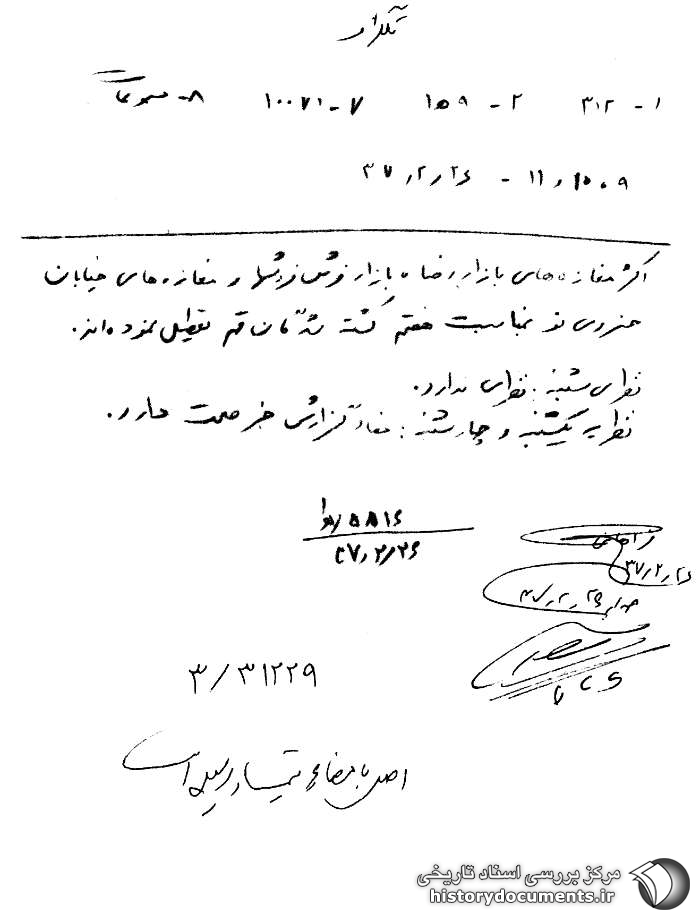 تلگراف
۱- ۳۱۲ ۲- ۱۵۹ ۷- ۱۰۰۷۱ ۸-
۹، ۱۰ و ۱۱ - ۳۷٫۲٫۲۶
اکثر مغازه‌های بازار رضا، بازار فرش فروشها و مغازه‌های خیابان
خسروی نو بمناسبت هفتم کشته شدگان قم تعطیل نموده‌اند.
نظریه شنبه: نظری ندارد.
نظریه یکشنبه و چهارشنبه: مفاد گزارش خبر صحت دارد.
۵۸۱۶
۳۷٫۲٫۲۶
۳۷٫۲٫۲۶
۳۷٫۲٫۲۶
۳/۳۱۲۲۹
اصل با امضاء تیمسار است
مرکز بررسی اسناد تاریخی
historydocuments.ir